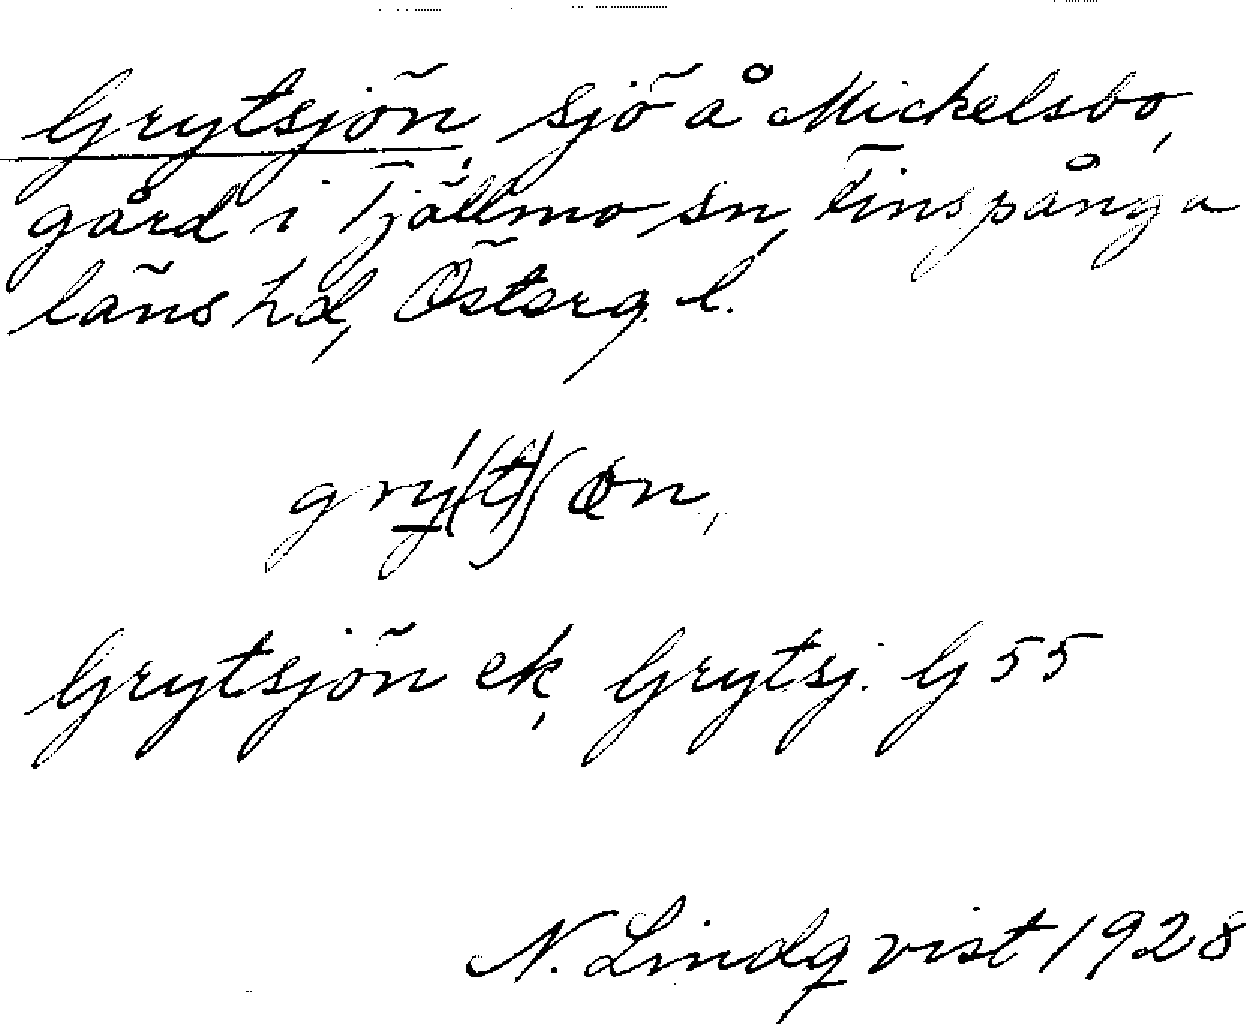 Grytsjön, sjö å Mickelsbo,
gård i Tjällmo sn, Finspånga
läns hd, Österg. l.
Grytsjön ek, Grytsj. G 55
N. Lindqvist 1928